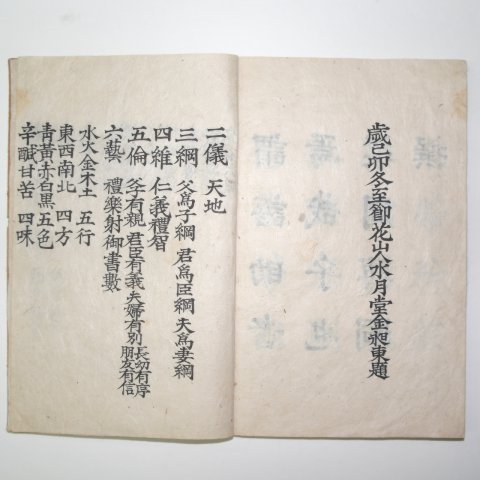 歲己卯冬至節花山人水月堂金昶東題
二儀 天地
三綱 父爲子綱 君爲臣綱 夫爲妻綱
四維 仁義禮智
五倫 父子有親 君臣有義 夫婦有別 長幼有序 朋友有信
六藝 禮樂射御書數
水火金木土 五行
東西南北 四方
靑黃赤白黑 五色
辛醎甘苦 四味